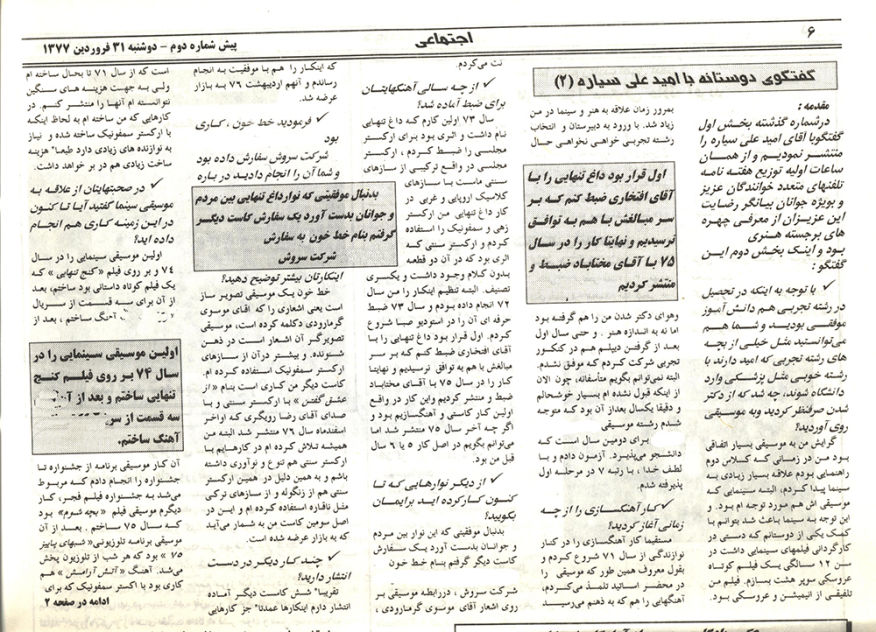 ۶
اجتماعی
پیش شماره دوم - دوشنبه ۳۱ فروردین ۱۳۷۷
گفتگوی دوستانه با امید علی سیاره (۲)
مقدمه :
درشماره گذشته بخش اول
گفتگوبا اقای امید علی سیاره را
منتشر نمودیم و از همان
ساعات اولیه توزیع هفته نامه
تلفنهای متعدد خوانندگان عزیز
و بویژه جوانان بیانگر رضایت
این عزیزان از معرفی چهره
های برجسته هنری
بود و اینک بخش دوم این
گفتگو :
✓ با توجه به اینکه در تحصیل
در رشته تجربی هم دانش آموز
موفقی بودید و شما هم
می‌توانستید مثل خیلی از بچه
های رشته تجربی که امید دارند با
رشته خوبی مثل پزشکی وارد
دانشگاه شوند، چه شد که از دکتر
شدن صرفنظر کردید وبه موسیقی
روی آوردید؟
گرایش من به موسیقی بسیار اتفاقی
بود من در زمانی که کلاس دوم
راهنمایی بودم علاقه بسیار زیادی به
سینما پیدا کردم، البته سینمایی که
موسیقی اش هم مورد توجه ام بود. و
این توجه به سینما باعث شد بتوانم با
کمک یکی از دوستانم که دستی در
کارگردانی فیلمهای سینمایی داشت در
سن ۱۲ سالگی یک فیلم کوتاه
عروسکی سوپر هشت بسازم. فیلم من
تلفیقی از انیمیشن و عروسکی بود.
بمرور زمان علاقه به هنر و سینما در من
زیاد شد. با ورود به دبیرستان و انتخاب
رشته تجربی خواهی نخواهی حال
اول قرار بود داغ تنهایی را با
آقای افتخاری ضبط کنم که بر
سر مبالغش با هم به توافق
نرسیدیم و نهایتا کار را در سال
۷۵ با آقای مختاباد ضبط و
منتشر کردیم
وهوای دکتر شدن من را هم گرفته بود
اما نه به اندازه هنر . و حتی سال اول
بعد از گرفتن دیپلم هم در کنکور
تجربی شرکت کردم که موفق نشدم.
البته نمی‌توانم بگویم متأسفانه، چون الان
از اینکه قبول نشده ام بسیار خوشحالم
و دقیقا یکسال بعداز آن بود که متوجه
شدم رشته موسیقی
برای دومین سال است که
دانشجو می‌پذیرد. آزمون دادم و با
لطف خدا ، با رتبه ۷ در مرحله اول
پذیرفته شدم.
✓ کار آهنگسازی را از چه
زمانی آغاز کردید؟
مستقیما کار آهنگسازی را در کنار
نوازندگی از سال ۷۱ شروع کردم و
بقول معروف همین طور که موسیقی را
در محضر اساتید تلمذ می‌کردم،
آهنگهایی را هم که به ذهنم می‌رسید
نت می‌کردم.
✓ از چه سالی آهنگهایتان
برای ضبط آماده شد؟
سال ۷۳ اولین کارم که داغ تنهایی
نام داشت و اثری بود برای ارکستر
مجلسی را ضبط کردم ، ارکستر
مجلسی در واقع ترکیبی از سازهای
سنتی ماست با سازهای
کلاسیک اروپایی و غربی در
کار داغ تنهایی من ارکستر
زهی و سمفونیک را استفاده
کردم و ارکستر سنتی که
اثری بود که در آن دو قطعه
بدون کلام وجود داشت و یکسری
تصنیف. البته تنظیم اینکار را من سال
۷۲ انجام داده بودم و سال ۷۳ ضبط
حرفه ای آن را در استودیو صبا شروع
کردم. اول قرار بود داغ تنهایی را با
آقای افتخاری ضبط کنم که بر سر
مبالغش با هم به توافق نرسیدیم و نهایتا
کار را در سال ۷۵ با آقای مختاباد
ضبط و منتشر کردیم واین کار در واقع
اولین کار کاستی و آهنگسازیم بود و
اگر چه آخر سال ۷۵ منتشر شد اما
می‌توانم بگویم در اصل کار ۵ یا ۶ سال
قبل من بود.
✓ از دیگر نوارهایی که تا
کنون کارکرده اید برایمان
بگویید؟
بدنبال موفقیتی که این نوار بین مردم
و جوانان بدست آورد یک سفارش
کاست دیگر گرفتم بنام خط خون
شرکت سروش ، دررابطه موسیقی بر
روی اشعار آقای موسوی گرمارودی ،
که اینکار را هم با موفقیت به انجام
رساندم و آنهم اردیبهشت ۷۶ به بازار
عرضه شد.
✓ فرمودید خط خون ، کاری
بود
شرکت سروش سفارش داده بود
و شما آن را انجام دادید در باره
بدنبال موفقیتی که نوارداغ تنهایی بین مردم
و جوانان بدست آورد یک سفارش کاست دیگر
گرفتم بنام خط خون به سفارش
شرکت سروش
اینکارتان بیشتر توضیح دهید؟
خط خون یک موسیقی تصویر ساز
است یعنی اشعاری را که آقای موسوی
گرمارودی دکلمه کرده است، موسیقی
تصویرگر آن اشعار است در ذهن
شنونده. و بیشتر درآن از سازهای
ارکستر سمفونیک استفاده کرده ام.
کاست دیگر من کاری است بنام «از
عشق گفتن» با ارکستر سنتی و با
صدای آقای رضا رویگری که اواخر
اسفندماه سال ۷۶ منتشر شد البته من
همیشه تلاش کرده ام در کارهایم با
ارکستر سنتی هم تنوع و نوآوری داشته
باشم و به همین دلیل در همین ارکستر
سنتی هم از زنگوله و از سازهای ترکی
مثل ناقاره استفاده کرده ام و این در
اصل سومین کاست من به شمار می‌آید
که به بازار عرضه شده است.
✓ چند کار دیگر در دست
انتشار دارید؟
تقریبا" شش کاست دیگر آماده
انتشار دارم اینکارها عمدتا" جز کارهایی
است که از سال ۷۱ تا بحال ساخته ام
ولی به جهت هزینه های سنگین
نتوانسته ام آنها را منتشر کنم. در
کارهایی که من ساخته ام به لحاظ اینکه
با ارکستر سمفونیک ساخته شده و نیاز
به نوازنده های زیادی دارد طبعا" هزینه
ساخت زیادی هم در بر خواهد داشت.
✓ در صحبتهایتان از علاقه به
موسیقی سینما گفتید آیا تا کنون
در این زمینه کاری هم انجام
داده اید؟
اولین موسیقی سینمایی را در سال
۷۴ و بر روی فیلم «کنج تنهایی » که
یک فیلم کوتاه داستانی بود ساختم، بعد
از آن برای سه قسمت از سریال
آهنگ ساختم ، بعد از
اولین موسیقی سینمایی را در
سال ۷۴ بر روی فیلم کنج
تنهایی ساختم و بعد از آن
سه قسمت از
آهنگ ساختم.
آن کار موسیقی برنامه از جشنواره تا
جشنواره را انجام دادم که مربوط
می‌شد به جشنواره فیلم فجر، کار
دیگرم موسیقی فیلم «بچه شوم» بود
که سال ۷۵ ساختم . بعد از آن
موسیقی برنامه تلوزیونی« شبهای پاییز
۷۵ » بود که هر شب از تلویزیون پخش
می‌شد. آهنگ « آتش آرامش » هم
کاری بود با اکستر سمفونیک که برای
ادامه در صفحه ۲